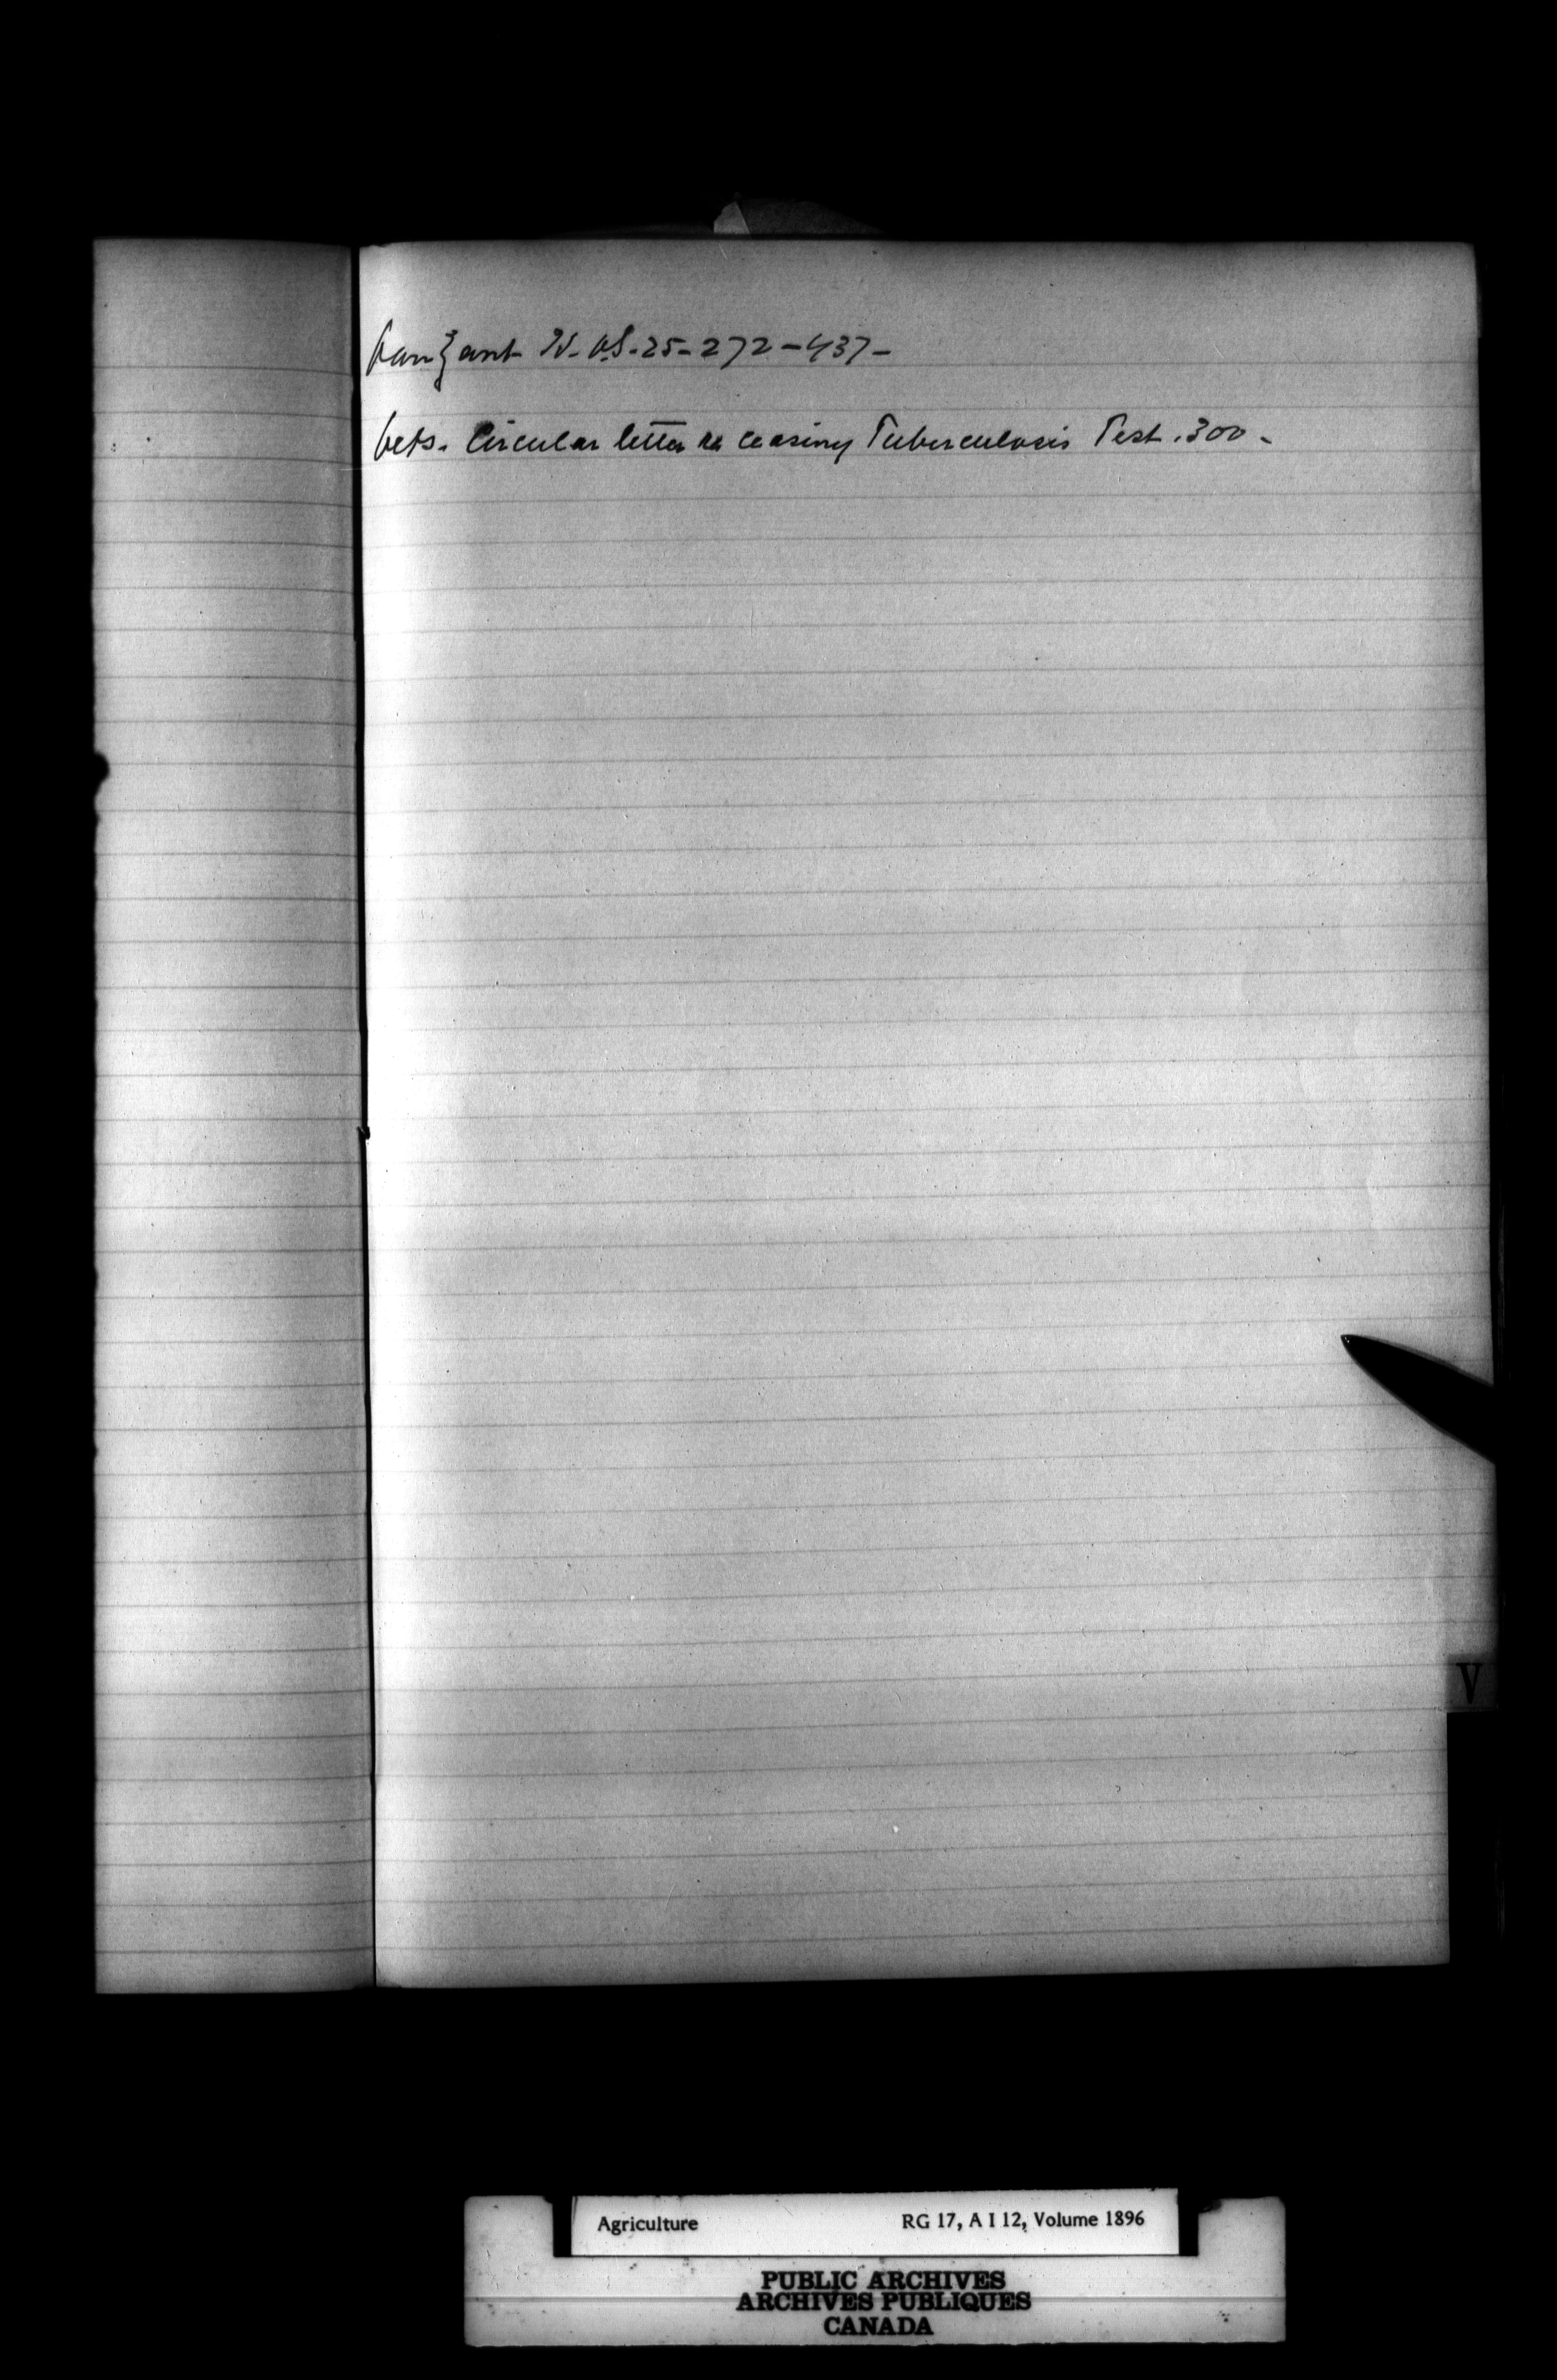 VanZant W. V.S. 25-272-437-
Vets. Circular letter re ceasing Tuberculosis Test. 300-
V
Agriculture RG 17, A I 12, Volume 1896
PUBLIC ARCHIVES
ARCHIVES PUBLIQUES
CANADA